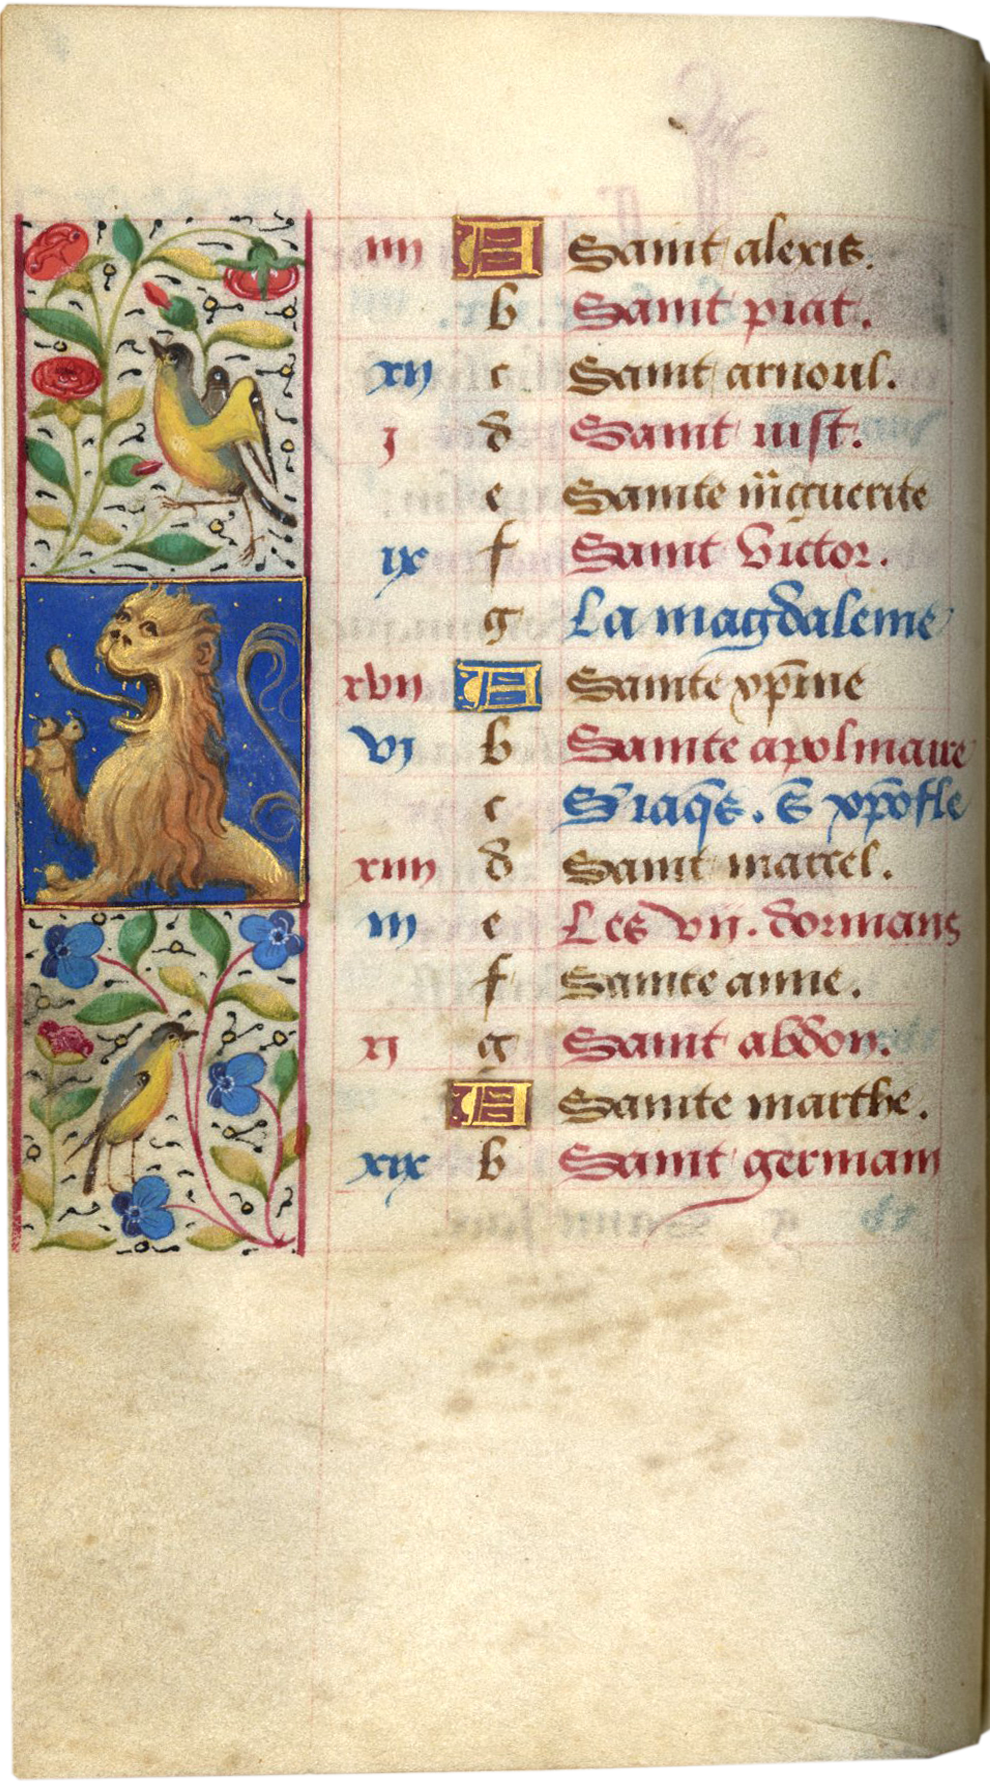 iiii A Saint alexis.
b Saint piat.
xii c Saint arnoul.
j d Saint iust.
e Sainte m̄guerite
ix f Saint victor.
g La magdaleine
xvii A Sainte xp̄ine
vi b Sainte apolinaire
c S iaq̄s. S xp̄ofle
xiiii d Saint marcel.
iii e Les vii. dormans
f Sainte anne.
xi g Saint abdon.
A Sainte marthe.
xix b Saint germain